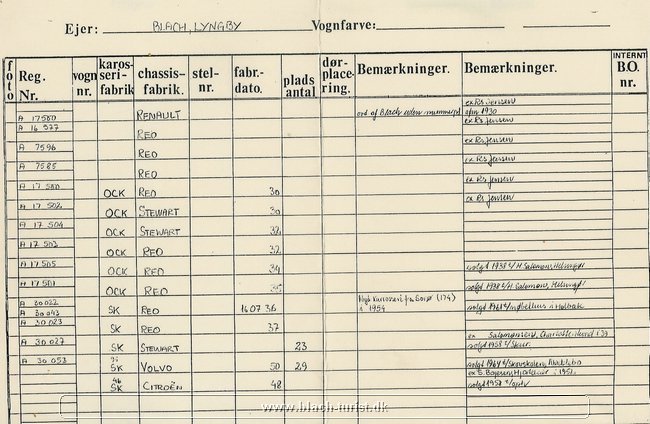 Ejer: BLACH, LYNGBY Vognfarve:
foto Reg. Nr. vogn nr. karos-seri-fabrik chassis-fabrik. stel-nr. fabr.-dato. plads antal dør-place-ring. Bemærkninger. Bemærkninger. INTERNT B.O. nr.
ex Rs Jensen
A 17580 RENAULT ord af Blach uden nummerpl apr 1930
A 16 977 REO ex Rs Jensen
A 7596 REO ex Rs Jensen
A 7585 REO ex Rs Jensen
ex Rs Jensen
A 17 580 OCK REO 30 ex Rs Jensen
A 17 502 OCK STEWART 30
A 17 504 OCK STEWART 32
A 17 503 OCK REO 32
A 17 505 OCK REO 34 solgt 1938 t/H. Salomons, Helsingør
A 17 501 OCK REO 35 solgt 1938 t/H. Salomons, Helsingør
A 30 022 Nyt Karrosseri fra Sorø (174)
A 30 043 SK REO 160736 i 1954 solgt 1961 i Holbæk
A 30 023 SK REO 37
ex Salomonsens, Charlotte-lund i 39
A 30 027 SK STEWART 23 solgt 1958
A 30 053 SK VOLVO 50 29 solgt 1964
i 1951
46 SK CITROËN 48 solgt 1958
www.blach-turist.dk